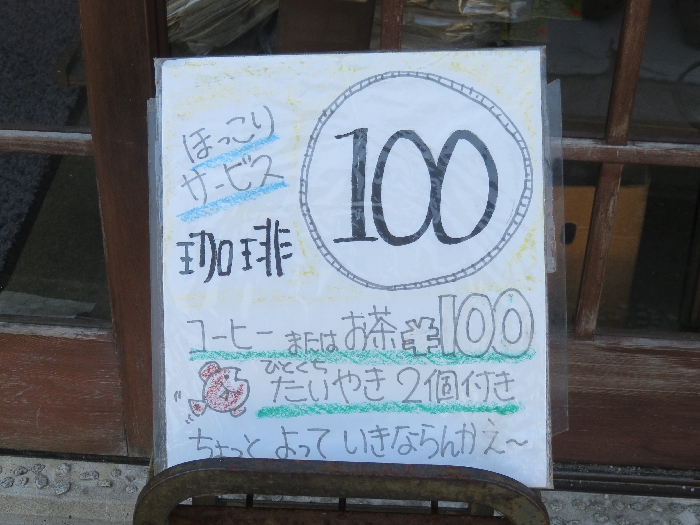 ほっこり
サービス
珈琲
100
コーヒーまたはお茶¥100
ひとくち
たいやき 2個付き
ちょっとよっていきならんかえ〜